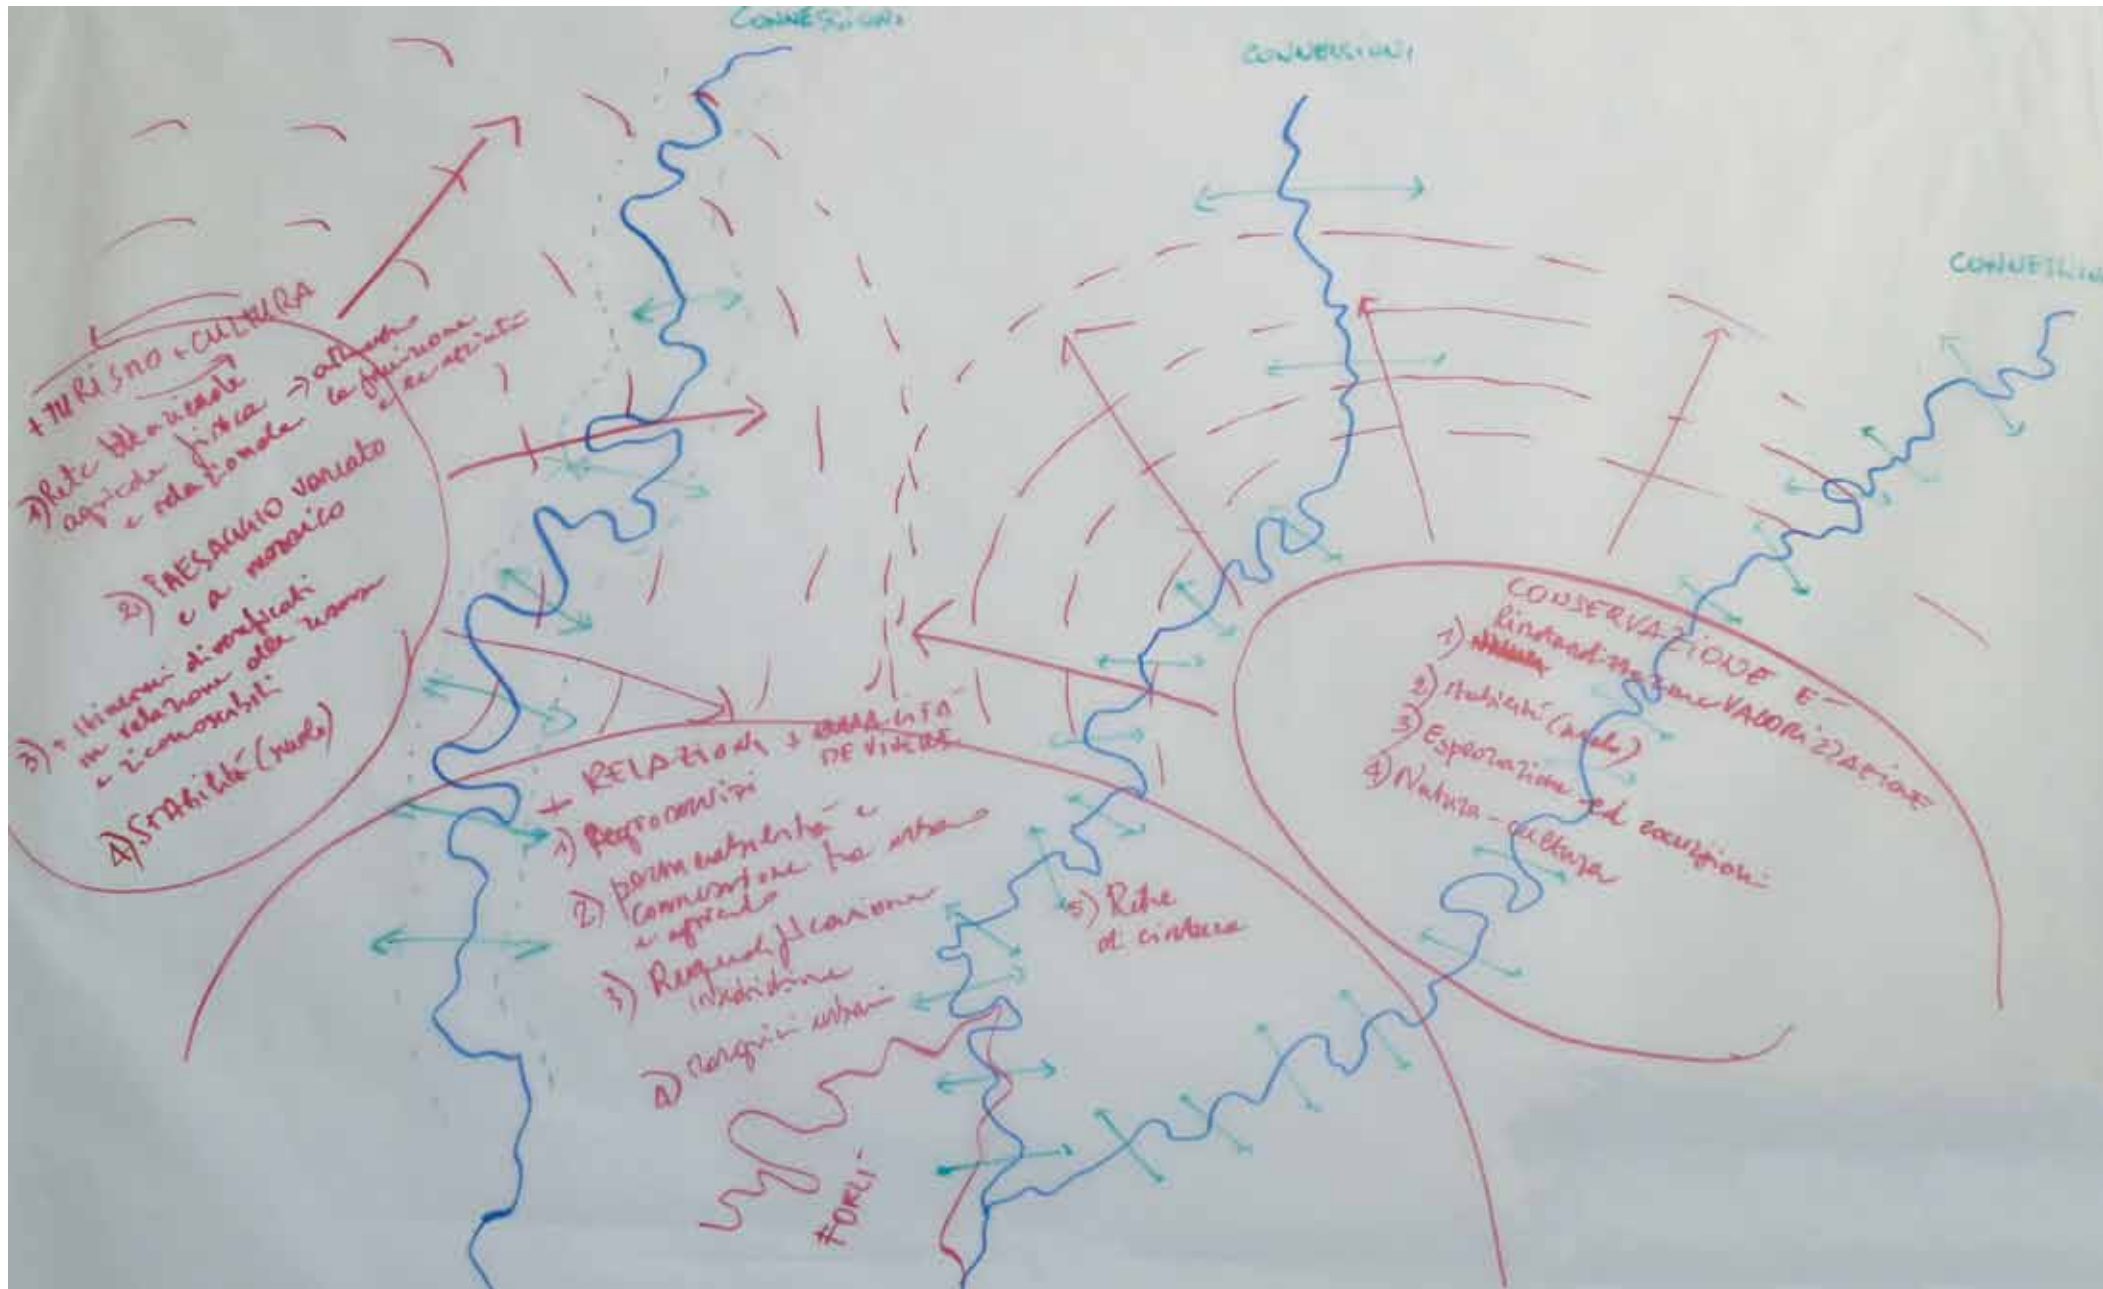 CONNESSIONI
CONNESSIONI
CONNESSIONI
+ TURISMO + CULTURA
1) Rete
agricola fisica → attraverso
e relazionale la fruizione
2) PAESAGGIO variato
e a mosaico
3) + itinerari diversificati
in relazione alla risorsa
e riconoscibili
4) Stabilità (suolo)
+ RELAZIONI + QUALITÀ
DE VIVERE
1) Agroservizi
2) permeabilità e
connessione tra urbano
e agricolo
3) Riqualificazione
4) margini urbani
5) Rete
di cintura
FORLÌ
CONSERVAZIONE E
VALORIZZAZIONE
1) Rinaturalizzazione
2) stabilità (suolo)
3) Esplorazione ed escursioni
4) Natura - cultura